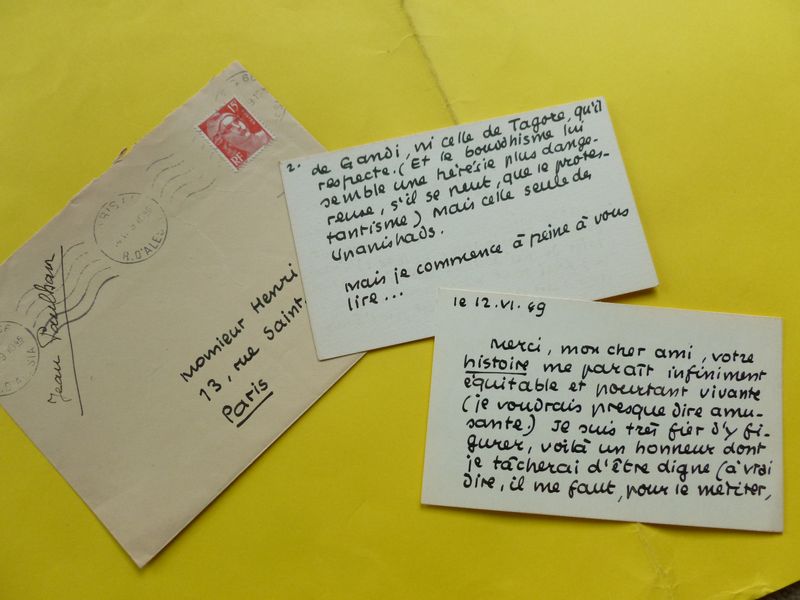 15F
RF
PARIS
R. D'ALESIA
Jean Paulhan
Monsieur Henri
13, rue Saint
Paris
2. de Gandi, ni celle de Tagore, qu'il
respecte. (Et le bouddhisme lui
semble une hérésie plus dange-
reuse, s'il se peut, que le protes-
tantisme) Mais celle seule des
Upanishads.
Mais je commence à peine à vous
lire...
le 12.VI.49
Merci, mon cher ami, votre
histoire me paraît infiniment
équitable et pourtant vivante
(je voudrais presque dire amu-
sante.) Je suis très fier d'y fi-
gurer, voilà un honneur dont
je tâcherai d'être digne (à vrai
dire, il me faut, pour le mériter,